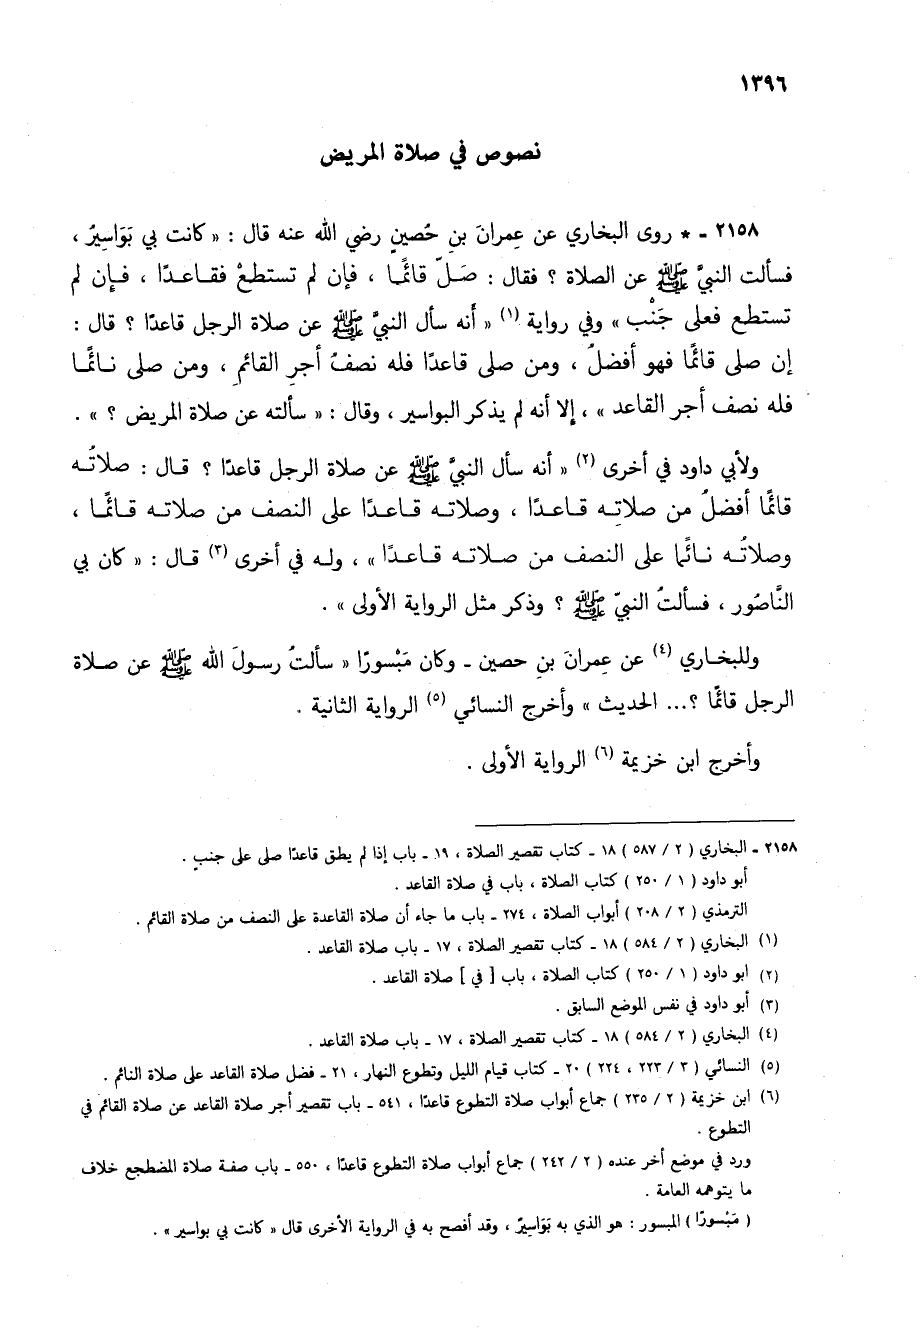 ١٣٩٦
نصوص في صلاة المريض
٢١٥٨ ـ * روى البخاري عن عِمرانَ بنِ حُصينٍ رضي الله عنه قال : « كانت بي بَوَاسيرُ ،
فسألت النبيَّ ﷺ عن الصلاة ؟ فقال : صَلِّ قائمًا ، فإن لم تستطعْ فقـاعـدًا ، فـإن لم
تستطع فعلى جَنْب » وفي رواية (١) « أنه سأل النبيَّ ﷺ عن صلاة الرجل قاعدًا ؟ قال :
إن صلى قائمًا فهو أفضلُ ، ومن صلى قاعدًا فله نصفُ أجرِ القائمِ ، ومن صلى نـائمًـا
فله نصف أجر القاعد » ، إلا أنه لم يذكر البواسير ، وقال : « سألته عن صلاة المريض ؟ » .
ولأبي داود في أخرى (٢) « أنه سأل النبيَّ ﷺ عن صلاة الرجل قاعدًا ؟ قـال : صلاتُـه
قائمًا أفضلُ من صلاتِـه قـاعـدًا ، وصلاتـه قـاعـدًا على النصف من صلاتـه قـائمًـا ،
وصلاتُـه نـائمًا على النصف من صـلاتـه قـاعـدًا » ، ولـه في أخرى (٣) قـال : « كان بي
النَّاصُور ، فسألتُ النبيّ ﷺ ؟ وذكر مثل الرواية الأولى » .
وللبخـاري (٤) عن عِمرانَ بنِ حصين ـ وكان مَبْسورًا « سألتُ رسـولَ الله ﷺ عن صـلاة
الرجل قائمًا ؟... الحديث » وأخرج النسائي (٥) الرواية الثانية .
وأخرج ابن خزيمة (٦) الرواية الأولى .
٢١٥٨ ـ البخاري ( ٢ / ٥٨٧ ) ١٨ ـ كتاب تقصير الصلاة ، ١٩ ـ باب إذا لم يطق قاعدًا صلى على جنبٍ .
أبو داود ( ١ / ٢٥٠ ) كتاب الصلاة ، باب في صلاة القاعد .
الترمذي ( ٢ / ٢٠٨ ) أبواب الصلاة ، ٢٧٤ ـ باب ما جاء أن صلاة القاعدة على النصف من صلاة القائم .
(١) البخاري ( ٢ / ٥٨٤ ) ١٨ ـ كتاب تقصير الصلاة ، ١٧ ـ باب صلاة القاعد .
(٢) ابو داود ( ١ / ٢٥٠ ) كتاب الصلاة ، باب [ في ] صلاة القاعد .
(٣) أبو داود في نفس الموضع السابق .
(٤) البخاري ( ٢ / ٥٨٤ ) ١٨ ـ كتاب تقصير الصلاة ، ١٧ ـ باب صلاة القاعد .
(٥) النسائي ( ٣ / ٢٢٣ ، ٢٢٤ ) ٢٠ ـ كتاب قيام الليل وتطوع النهار ، ٢١ ـ فضل صلاة القاعد على صلاة النائم .
(٦) ابن خزيمة ( ٢ / ٢٣٥ ) جماع أبواب صلاة التطوع قاعدًا ، ٥٤١ ـ باب تقصير أجر صلاة القاعد عن صلاة القائم في
التطوع .
ورد في موضع أخر عنده ( ٢ / ٢٤٢ ) جماع أبواب صلاة التطوع قاعدًا ، ٥٥٠ ـ باب صفـة صلاة المضطجع خلاف
ما يتوهمه العامة .
( مَبْسورًا ) المبسور : هو الذي به بَوَاسِيرٌ ، وقد أفصح به في الرواية الأخرى قال « كانت بي بواسير » .